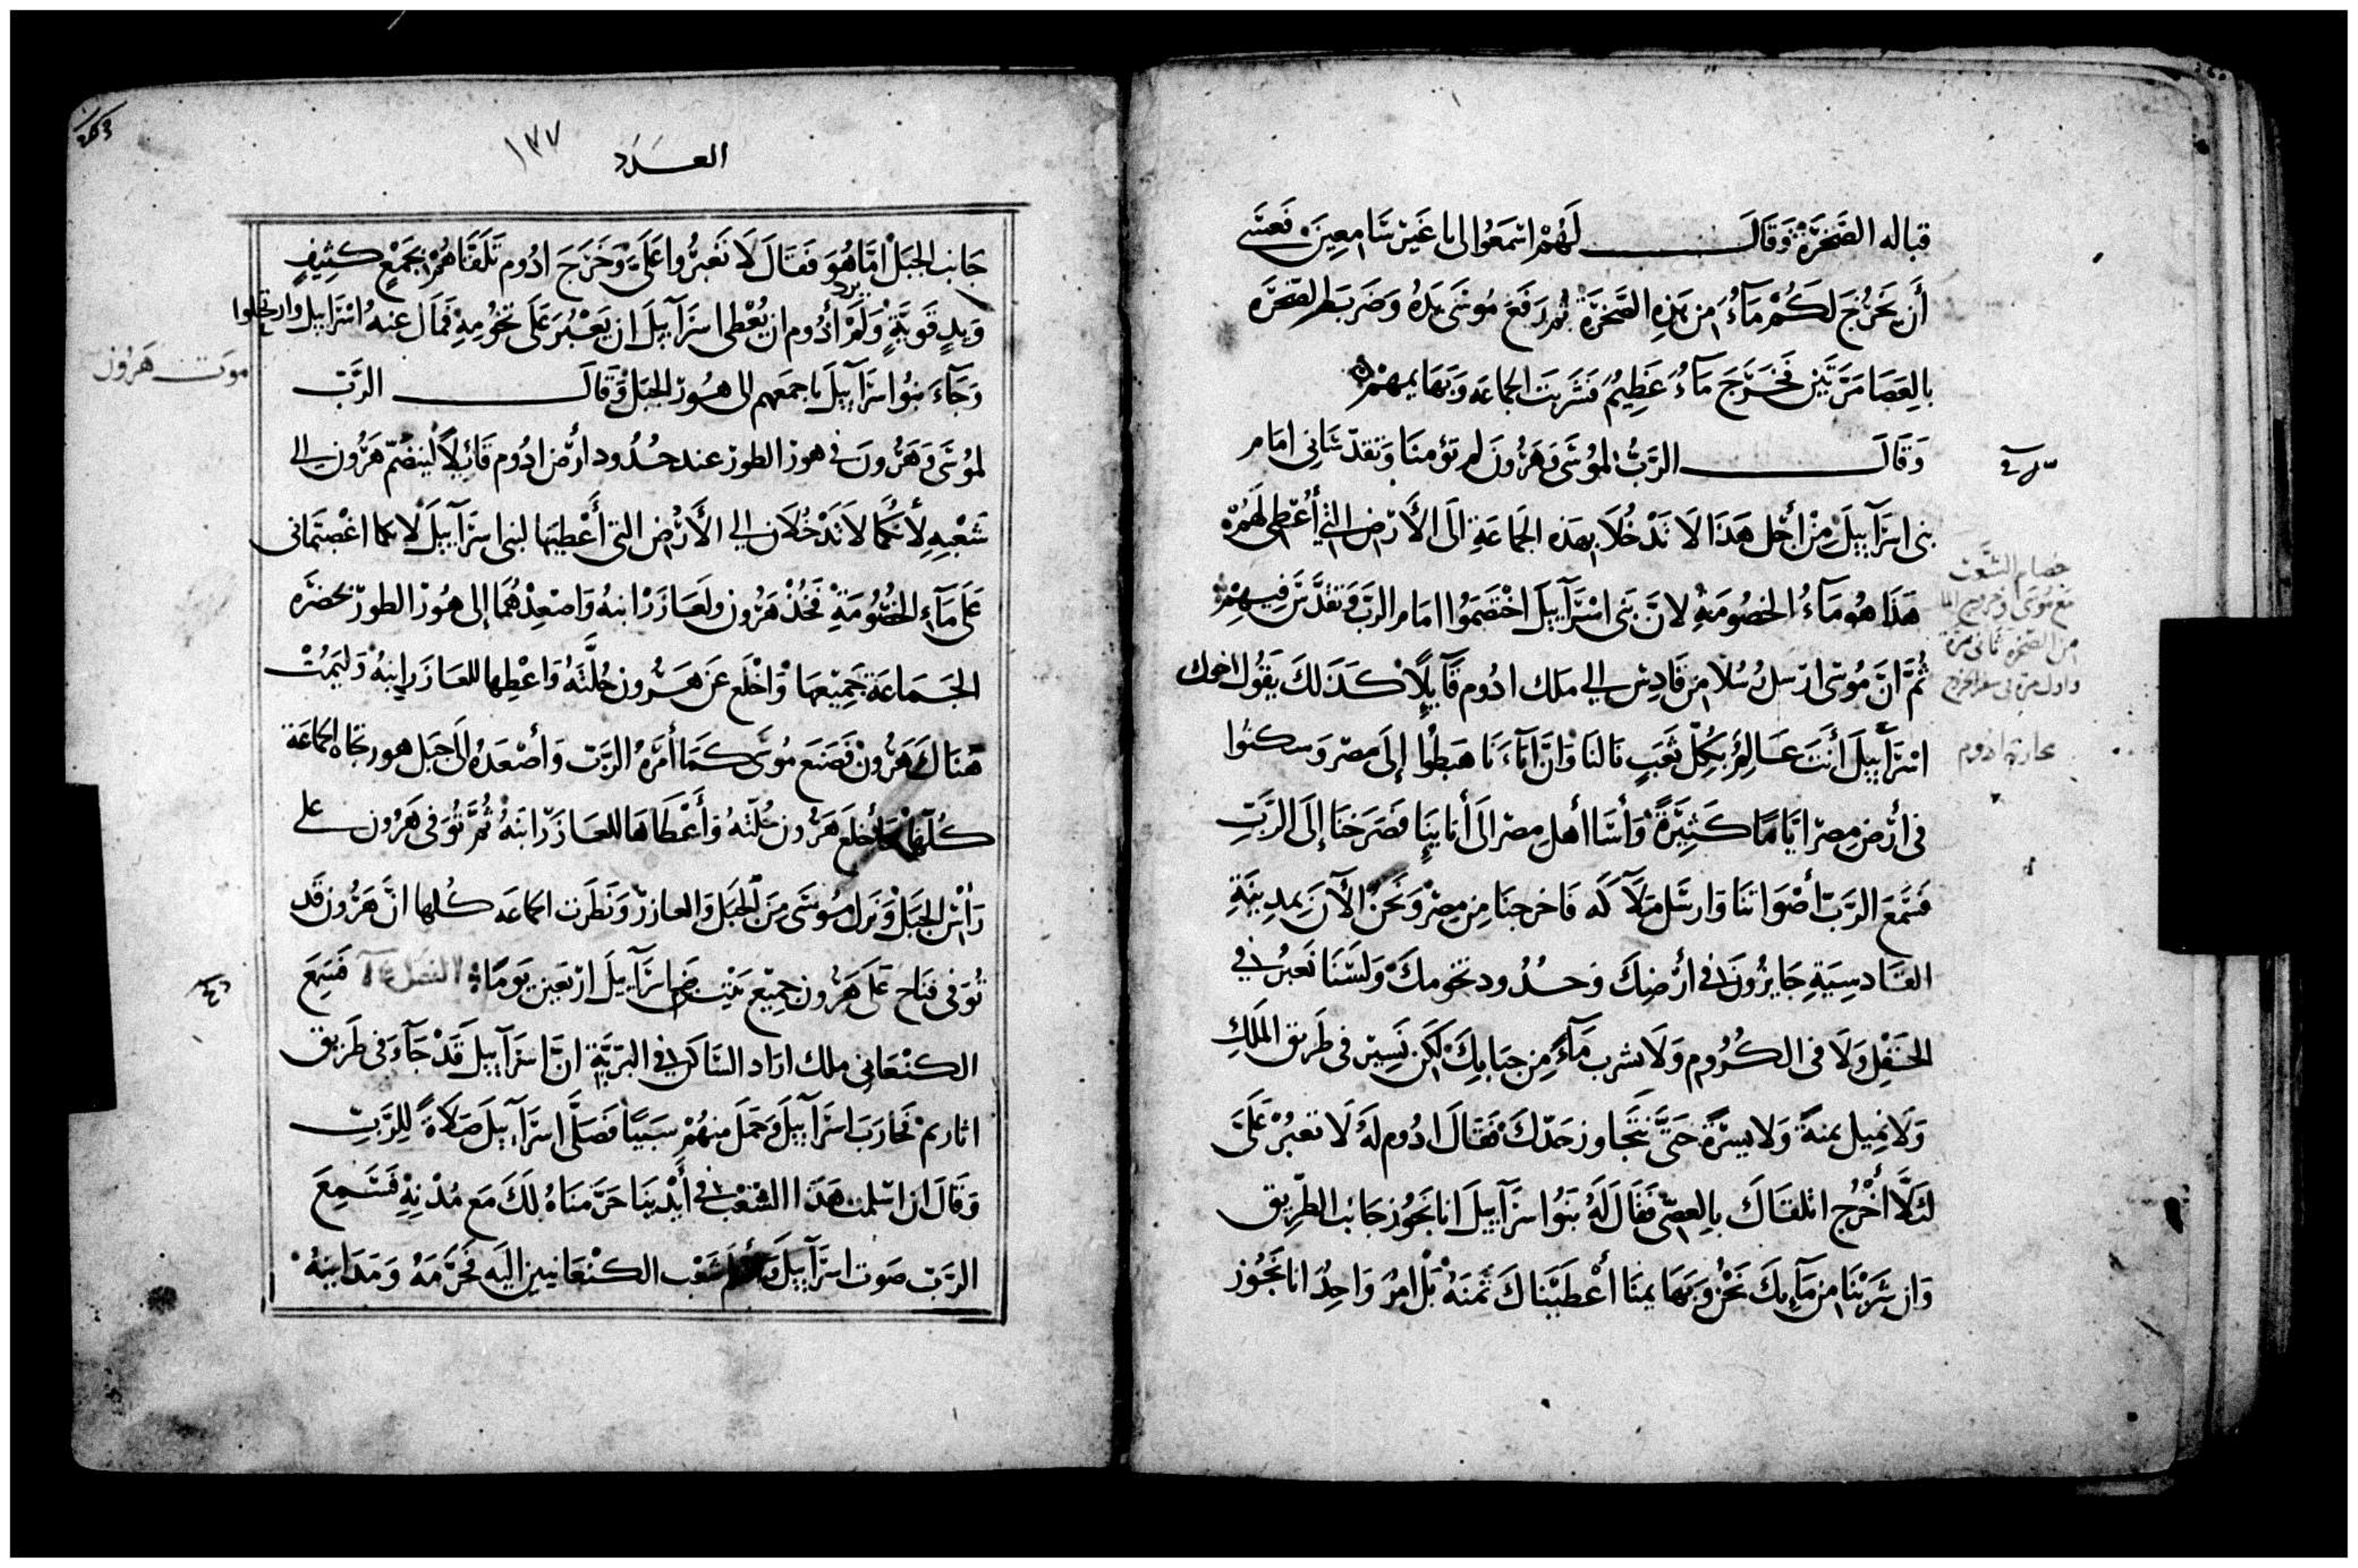 قباله الصَّخرَة وَقَالَ لَهُمْ اسْمَعُوا الى يا غَيْر سَامِعِينَ فَعَسَى
أَن يَخرُجَ لَكُمْ مَآءُ مِن هَذِهِ الصَّخرَة ثُم رَفَعَ مُوسَى يَدَهُ وَضَرَبَ الصّخرَه
بِالعَصَا مَرَّتَيْن فَخَرَجَ مَآءُ عَظِيمُ فَشَربَت الجماعَه وَبَهَايمهُمْ
وَقَالَ الرَّبُّ لمُوسَى وَهَرُونَ لم تؤمنَا وَتقدّسَانِى امَام
بنى اسرَآييلَ مِنْ أَجْل هَذَا لَا تَدْخُلَا بهَذه الجَمَاعَةِ الَى الأَرْض التي أُعْطِى لَهُمْ
هَذَا هُو مَآءُ الخصُومَةِ لانَّ بَنى اسْرَآييلَ اخْتصَمُوا امَام الربّ وَتقدَّسَ فِيهِمْ
ثُمَّ انَّ مُوسَى ارْسَل رُسُلا مِن قَادِس الي ملك ادُوم قَآيِلًا كَذَلكَ يَقُول اخوك
اسْرَآييلَ أَنتَ عَالِمُ بِكُلّ تَعَبٍ نَالنَا وَانَّ آبَآءَنَا هَبَطُوا إلَى مصْر وَسكنُوا
فى أَرْض مِصرَ ايَّامًا كَثِيرَةً وَأَسَا أهل مصرَ الَى أَنَا يِنَا فصَرَخنَا إلَى الرَّبّ
فسَمَعَ الرَّبّ أَصْوَاتنَا وَارسَل مَلَآكَه فَاخرجنَا مِن مِصْر وَنَحنُ الْآنَ بمدِينَةِ
القَادسِيَةِ جَايزُونَ فى أَرْضِكَ وَحدُود تخومكَ وَلسْنَا نَعبُر في
الحَقْلِ وَلَا فى الكرُوم وَلَا نشرب مَآءً مِن جبَابكَ لكن نَسِير فى طَرِيق المَلكِ
وَلَا نَمِيل يمنةً وَلا يسرَةً حَتَّى نتجَاوز حَدّكَ فقَالَ ادُوم لَهُ لَا تعبُرْ عَلَىَّ
لئلَّا أَخْرُج اتلقَاكَ بالعِصّى فقَال لَهُ بَنُوا اسرَآييلَ انا نَجُوز جَانب الطّرِيق
وَان شَرَبْنَا مِن مَآيكَ نَحْنُ وَبَهَايمنَا أَعْطَيْنَاكَ ثَمنَهُ بَلْ امرُ وَاحِدُ انا نَجُوز
خصام الشعب
مع موسى
من الصخره ثانى مرة
العـــدد ١٣٧
جَانب الجَبَلْ امَّا هُوَ فَقَالَ لَا تَعبرُوا عَلَىَّ وَخَرَجَ ادُوم تَلَقَّاهُمْ بجَمْعٍ كثِيفٍ
وَيدٍ قَوِيَّةٍ وَلَمْ يرد أَدُوم ان يُعْطى اسرَآييلَ ان يَعْبُرَ عَلَى تخُومِهِ فَمَال عنهُ اسْرَاييل وارتحلوا
وَجَآءَ بنُوا اسرَآييلَ باجمَعهم الى هُور الجَبَل وَقَالَ الرَّبّ
لمُوسَى وَهَرُونَ فى هور الطور عند حدُود أَرْض ادُوم قَائلاً لينضَمّ هَرُون الى
شَعْبِهِ لأَنَّكمَا لَا تَدْخُلَان الي الأَرْض التى أَعْطيتها لبنى اسرَآييلَ لانكما اغْضبتمَانى
عَلى مَآءِ الخصُومَةِ فَخُذْ هَرُون وَلعَازَر ابنهُ وَاصعدْهُمَا إلى هُور الطورْ بحضرَه
الجَمَاعَة جَمِيعها وَاخْلَع عَن هَرُون حُلَّتَهُ وَاعْطِها للعَازَر ابنهُ وَليَمُتْ
هُنَاكَ هَرُون فَصَنعَ مُوسَى كَمَا أَمَرَهُ الرَّبّ وَأَصْعَدَهُ الَى جبَل هور تجاه الجمَاعَة
كُلّها وَأَخلعَ هَرُون حُلّتَهُ وَأَعْطَاهَا للعَازَر ابنَهُ ثُمَّ تُوَفى هَرُون على
رَأسْ الجَبَل وَنَزل مُوسَى مِنَ الجَبَل وَالعازر وَنَظَرت الجماعَه كُلها انَّ هَرُون قَد
تُوَفى فنَاح عَلَى هَرُون جمِيْع بَيْت اسرَآييلَ ارْبَعين يَومًا فَسَمِعَ
الكنعَانى ملك اراد السَّاكن في البَرّيَّةِ انَّ اسرَآييلَ قَدْ جَآءَ فى طَرِيق
اثاريم فحَارَبَ اسرَآييلَ وَحَمَلَ منهُمْ سَبيًا فَصَلَّى اسرَآييلَ صَلَاةً لِلرَّبّ
وَقَالَ ان اسْلمتَ هَذَا الشعْب في أَيْدِينَا حَرَّمنَاهُ لكَ مَع مُدْنِهِ فَسَمِعَ
الرَّبّ صَوت اسرَآييلَ وَأَسلَم شَعْب الكنْعَانيين اليَه فحَرَّمَهُ وَمَدَاينَهُ
موت هَرُون